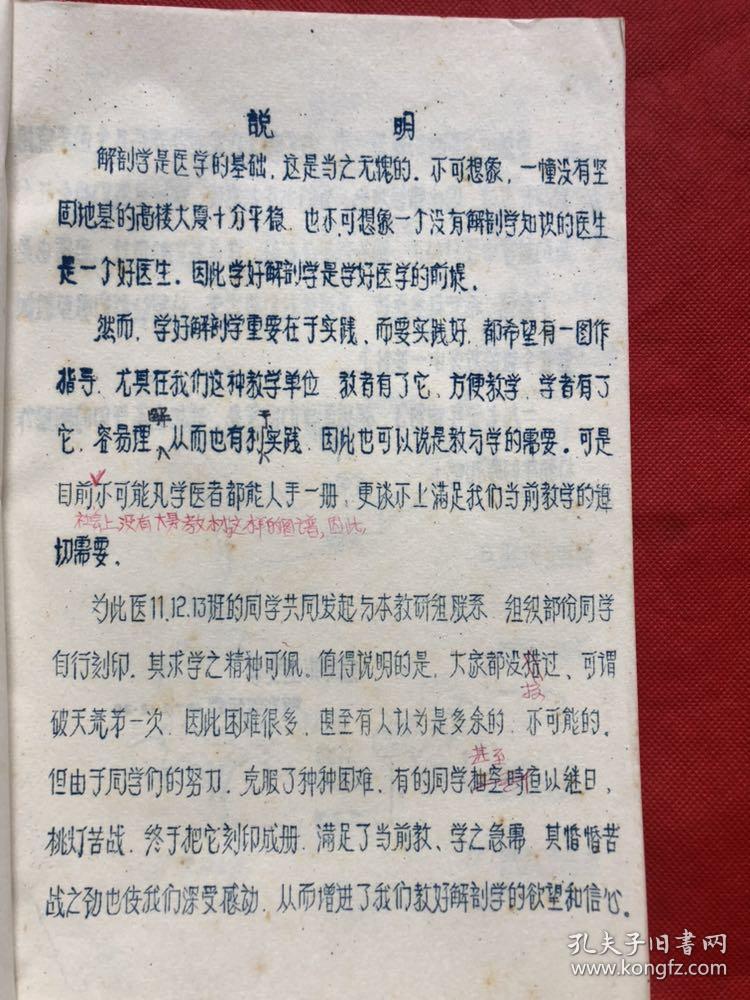 説 明
解剖学是医学的基础，这是当之无愧的．不可想象，一幢没有坚
固地基的高楼大厦十分平稳．也不可想象一个没有解剖学知识的医生
是一个好医生．因此学好解剖学是学好医学的前提．
然而，学好解剖学重要在于实践，而要实践好，都希望有一图作
指导．尤其在我们这种教学单位 教者有了它，方便教学，学者有了
解 于
它，容易理 从而也有利实践．因此也可以说是教与学的需要．可是
目前不可能凡学医者都能人手一册，更谈不上满足我们当前教学的迫
社会上没有大量教材这样的图谱，因此
切需要．
为此医11.12.13班的同学共同发起与本教研组联系．组织部份同学
自行刻印．其求学之精神可佩．值得说明的是，大家都没 过，可谓
破天荒第一次．因此困难很多，甚至有人认为是多余的．不可能的．
甚至
但由于同学们的努力．克服了种种困难，有的同学抽空 以继日，
桃灯苦战．终于把它刻印成册．满足了当前教、学之急需．其 苦
战之劲也使我们深受感动．从而增进了我们教好解剖学的欲望和信心．
孔夫子旧書网
www.kongfz.com